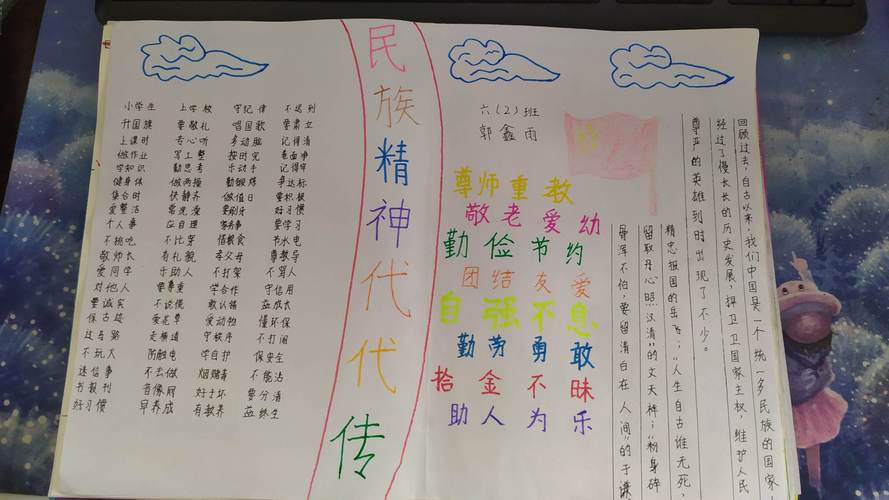 民族精神代代传
小学生 上学校 守纪律 不迟到
升国旗 要敬礼 唱国歌 要肃立
上课时 专心听 多动脑 记得清
做作业 写工整 按时完 卷面净
学知识 勤思考 乐动手 记得牢
健身体 做两操 勤锻炼 争达标
集合时 快静齐 做值日 要积极
爱整洁 常洗澡 要刷牙 好习惯
个人事 应自理 家务事 要学习
不挑吃 不比穿 惜粮食 节水电
敬师长 有礼貌 孝父母 尊教导
爱同学 乐助人 不打架 不骂人
对他人 要尊重 学合作 守信用
要诚实 不说慌 敢认错 益成长
保古迹 爱花草 爱动物 懂环保
过马路 走横道 守秩序 不打闹
不玩火 防触电 学自护 保安全
迷信事 不去做 烟赌毒 不能沾
书报刊 音像 好于坏 要分清
好习惯 早养成 有教养 益终生
六(2)班
郭鑫雨
尊师重教
敬老爱幼
勤俭节约
团结友爱
自强不息
勤劳勇敢
拾金不昧
助人为乐
回顾过去,自古以来,我们中国是一个统一多民族的国家
经过了慢长长的历史发展,捍卫卫国家主权,维护人民
尊严的英雄到时出现了不少。
精忠报国的岳飞;"人生自古谁无死,
留取丹心照汉清"的文天祥;"粉身碎
骨浑不怕,要留清白在人间"的于谦